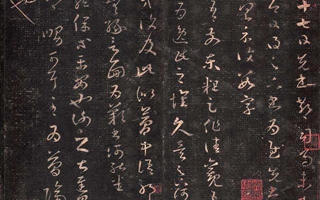 十七日先書郗司馬未
日得足下書為慰先書
具示復數字
吾前東粗足作佳觀
為逸民之懷久矣足下何
以等復及此似夢中語耶
無緣言面為歎書何能悉
龍保等平安也謝之甚遲
卿舅可耳至為簡隔
也